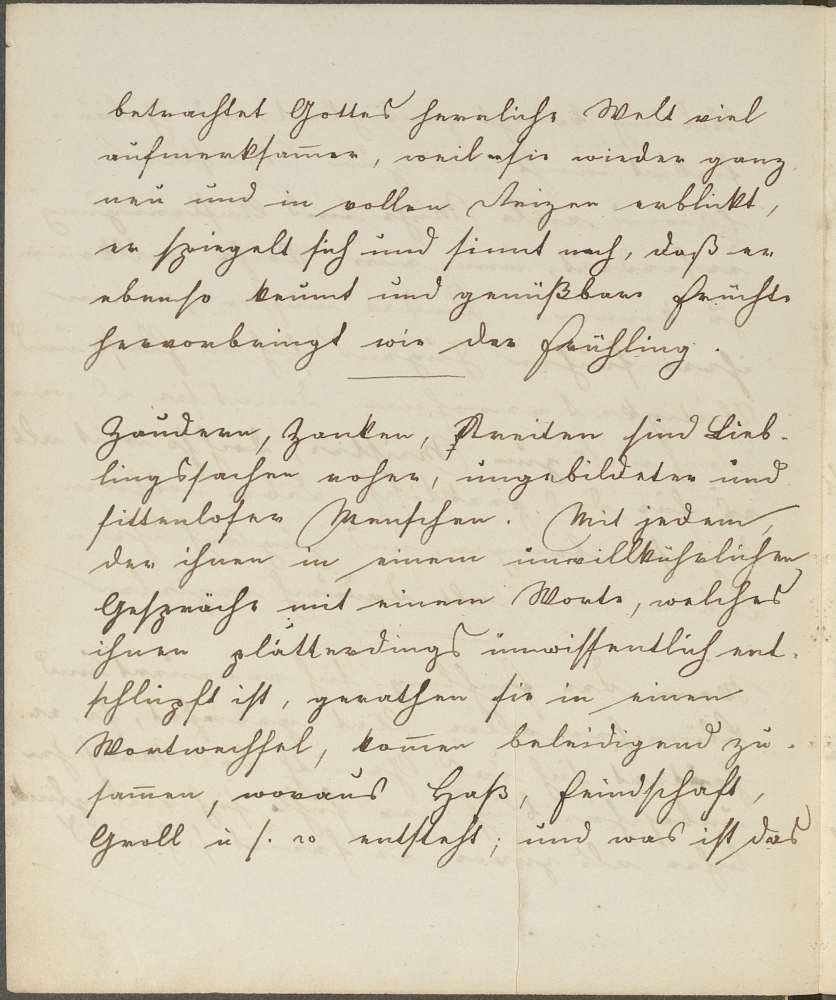 betrachtet Gottes herrliche Welt viel
aufmerksamer, weil sie wieder ganz
neu und in vollen Reizen erblickt,
er spiegelt sich und sinnt nach, daß er
ebenso keumt und genüßbare Früchte
hervorbringt wie der Frühling.
Zaudern, Zanken, Streiten sind Lieb-
lingssachen roher, ungebildeter und
sittenloser Menschen. Mit jedem,
der ihnen in einem unwillkührlichen
Gespräche mit einem Worte, welches
ihnen plätterdings unwissentlich ent-
schlüpft ist, gerathen sie in einen
Wortwechsel, kom̄en beleidigend zu-
sam̄en, woraus Haß, Feindschaft,
Groll u s. w entsteht; und was ist das